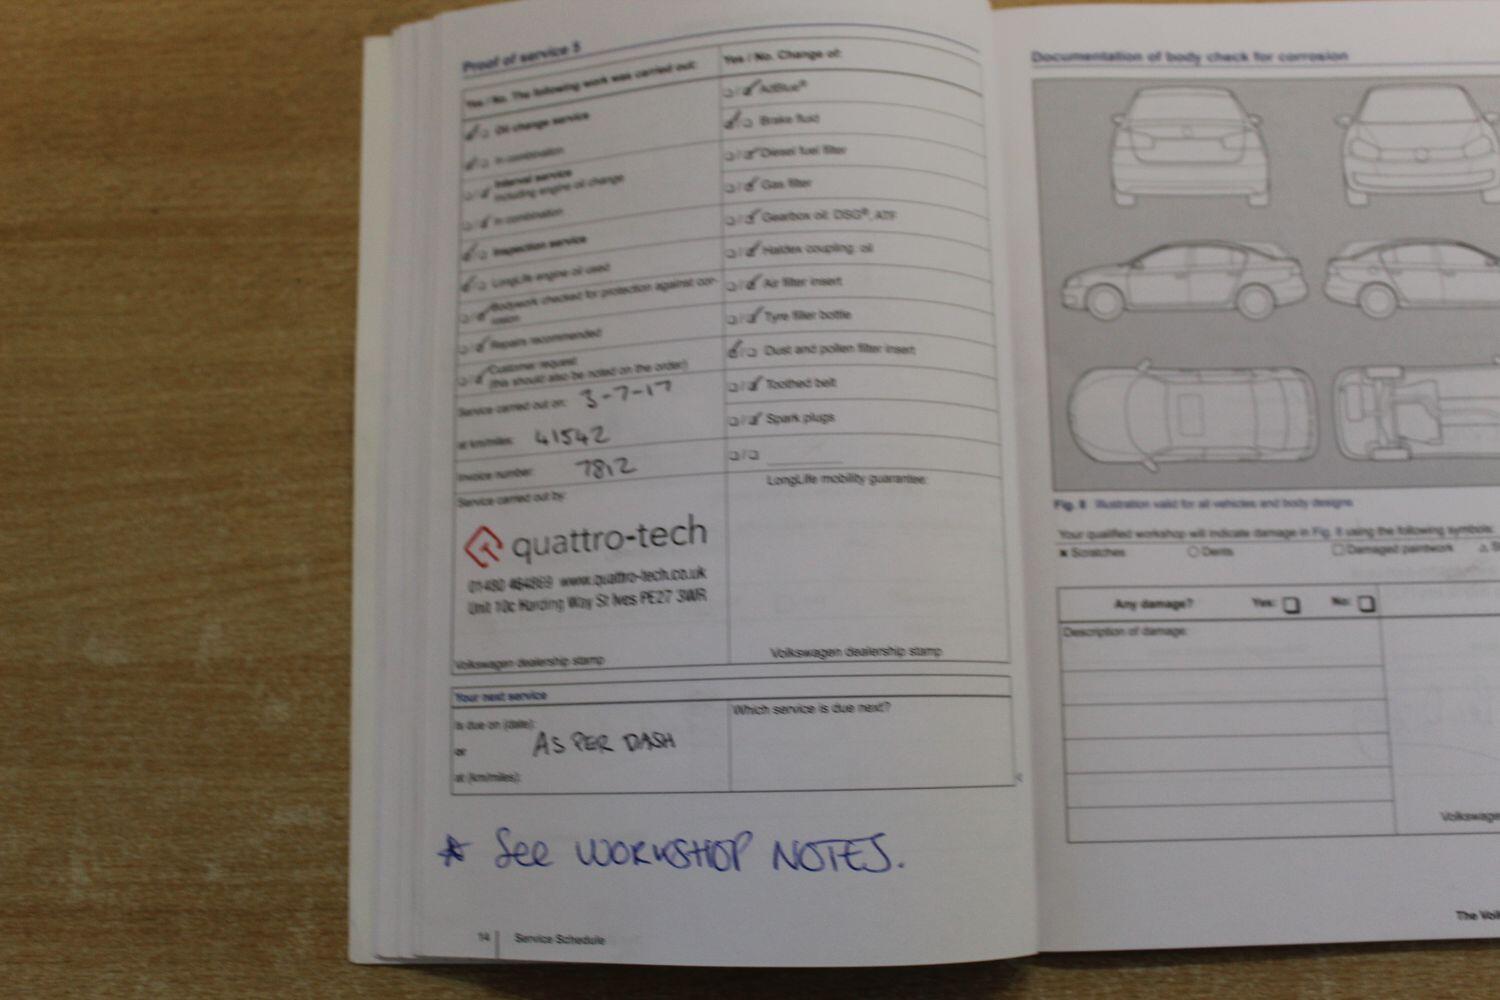 Proof of service 5
Yes / No. The following work was carried out:
Oil change service
In combination
Interval service
including engine oil change
In combination
Inspection service
LongLife engine oil used
Bodywork checked for protection against cor-
rosion
Repairs recommended
Customer request
(this should also be noted on the order)
Service carried out on: 3-7-17
at km/miles: 41542
Invoice number: 7812
Service carried out by:
quattro-tech
01480 464869 www.quattro-tech.co.uk
Unit 10c Harding Way St Ives PE27 3WR
Volkswagen dealership stamp
Yes / No. Change of:
AdBlue®
Brake fluid
Diesel fuel filter
Gas filter
Gearbox oil: DSG®, ATF
Haldex coupling: oil
Air filter insert
Tyre filler bottle
Dust and pollen filter insert
Toothed belt
Spark plugs
LongLife mobility guarantee:
Volkswagen dealership stamp
Your next service
Is due on (date):
or AS PER DASH
at (km/miles):
Which service is due next?
* See WORKSHOP NOTES.
14 Service Schedule
Documentation of body check for corrosion
Fig. 8 Illustration valid for all vehicles and body designs
Your qualified workshop will indicate damage in Fig. 8 using the following symbols:
Scratches Dents Damaged paintwork
Any damage? Yes: No:
Description of damage:
Volkswage
The Vol